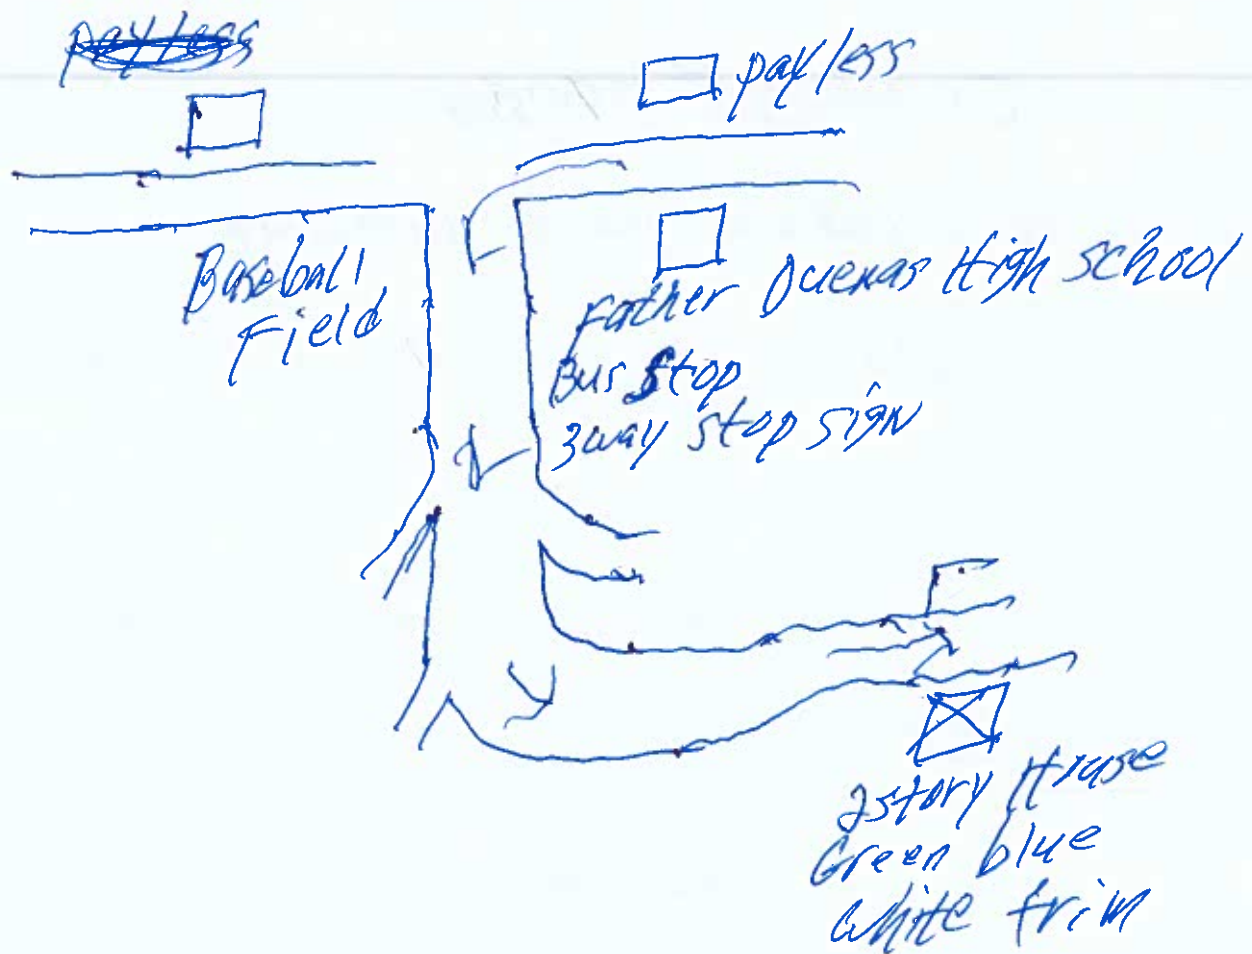 payless
payless
Baseball
Field
Father Duenas High school
Bus stop
3way stop sign
2story House
Green blue
white trim